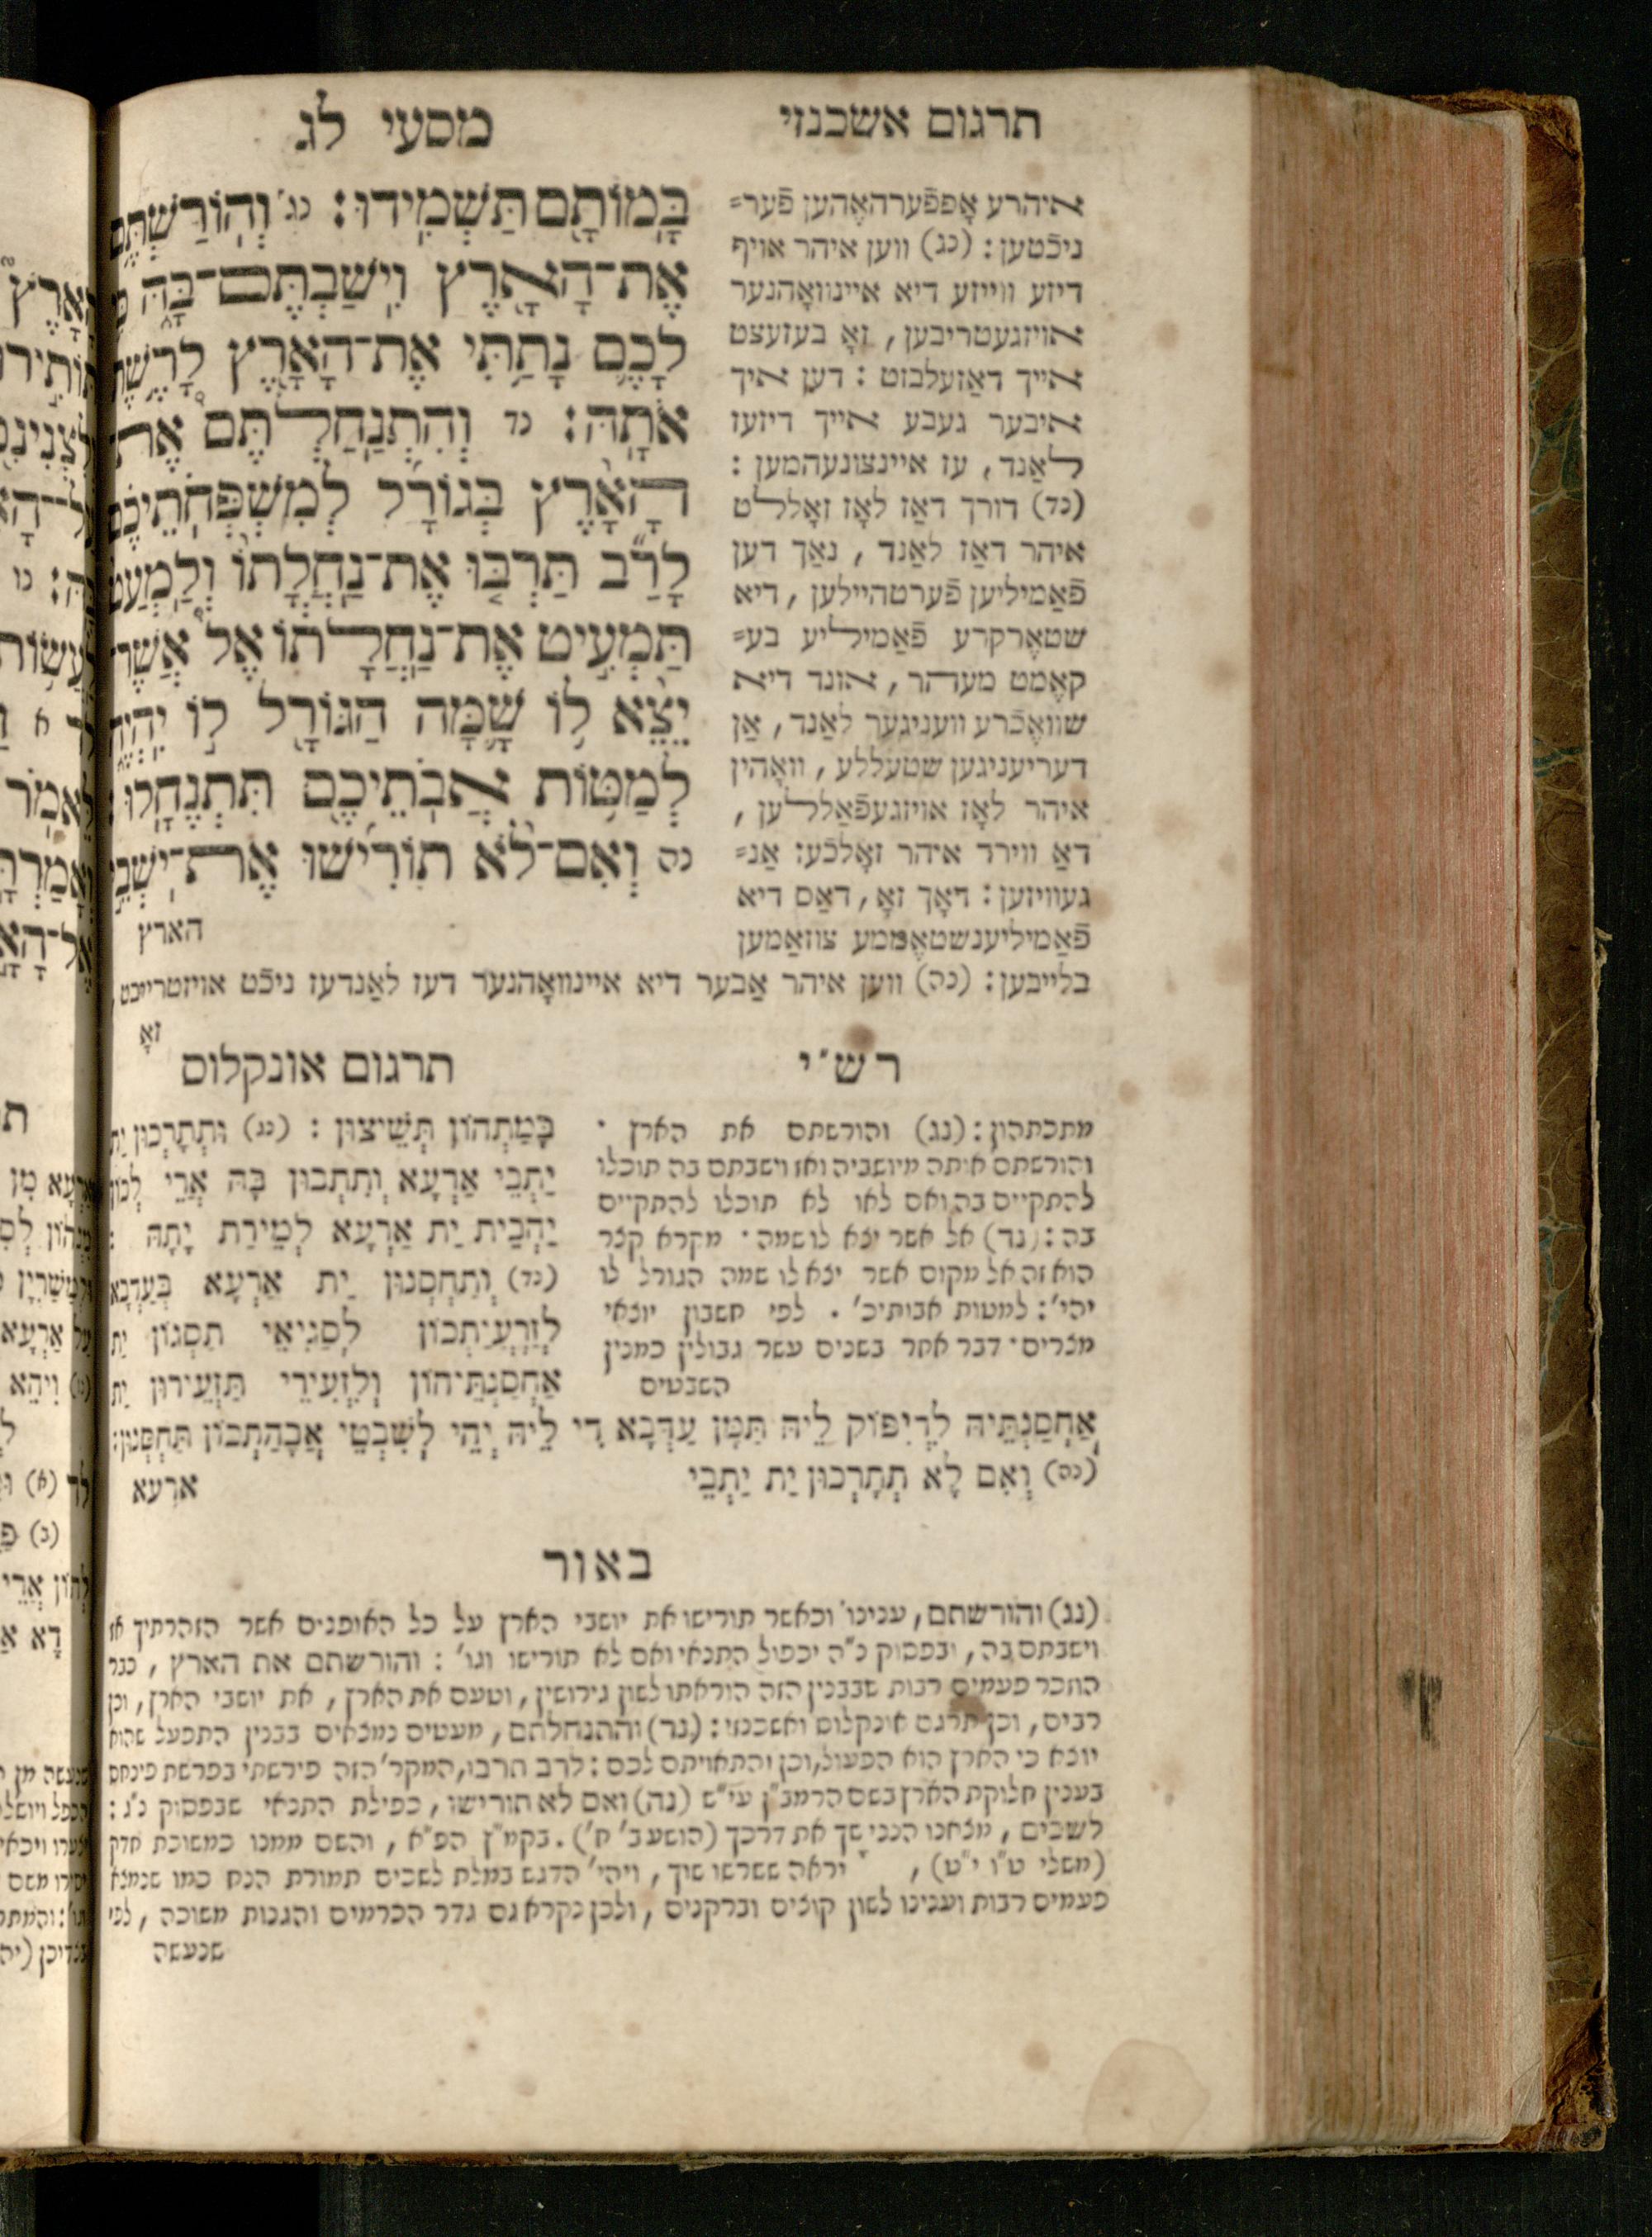 תרגום אשכנזי
מסעי לג
איהרע אָפפֿערהאֶהען פֿער=
ניכֿטען: (נג) ווען איהר אויף
דיזע ווייזע דיא איינוואָהנער
אויזגעטריבען, זאָ בעזעצט
אייך דאַזעלבזט: דען איך
איבער געבע אייך דיזעז
לאַנד, עז איינצונעהמען:
(נד) דורך דאַז לאָז זאָללט
איהר דאַז לאַנד, נאַך דען
פֿאַמיליען פֿערטהיילען, דיא
שטאֶרקרע פֿאַמיליע בע=
קאֶמט מעהר, אונד דיא
שוואֶכֿרע וועניגער לאַנד, אַן
דעריעניגען שטעללע, וואָהין
איהר לאָז אויזגעפֿאַללען,
דאַ ווירד איהר זאָלכֿעז אַנ=
געוויזען: דאָך זאָ, דאַס דיא
פֿאַמיליענשטאֶממע צוזאַמען
בלייבען: (נה) ווען איהר אַבער דיא איינוואָהנער דעז לאַנדעז ניכֿט אויזטרייבט,
זאָ
בָּמוֹתָם תַּשְׁמִידוּ: נג וְהוֹרַשְׁתֶּם
אֶת־הָאָרֶץ וִישַׁבְתֶּם־בָּהּ כִּי
לָכֶם נָתַתִּי אֶת־הָאָרֶץ לָרֶשֶׁת
אֹתָהּ: נד וְהִתְנַחַלְתֶּם אֶת־
הָאָרֶץ בְּגוֹרָל לְמִשְׁפְּחֹתֵיכֶם
לָרַב תַּרְבּוּ אֶת־נַחֲלָתוֹ וְלַמְעַט
תַּמְעִיט אֶת־נַחֲלָתוֹ אֶל אֲשֶׁר־
יֵצֵא לוֹ שָׁמָּה הַגּוֹרָל לוֹ יִהְיֶה
לְמַטּוֹת אֲבֹתֵיכֶם תִּתְנֶחָלוּ:
נה וְאִם־לֹא תוֹרִישׁוּ אֶת־יֹשְׁבֵי
הארץ
רש״י
מתכתהון: (נג) והורשתם את הארץ ·
והורשתם אותה מיושביה ואז וישבתם בה תוכלו
להתקיים בה ואם לאו לא תוכלו להתקיים
בה: (נד) אל אשר יצא לו שמה · מקרא קצר
הוא זה אל מקום אשר יצא לו שמה הגורל לו
יהי׳: למטות אבותיכ׳ · לפי חשבון יוצאי
מצרים · דבר אחר בשנים עשר גבולין כמנין
השבטים
תרגום אונקלוס
בָּמַתְהוֹן תְּשֵׁיצוּן: (נג) וּתְתָרְכוּן יַת
יַתְבֵי אַרְעָא וְתִתְבוּן בָּהּ אֲרֵי לְכוֹן
יַהֲבִית יַת אַרְעָא לְמֵירַת יָתָהּ:
(נד) וְתַחְסְנוּן יַת אַרְעָא בְּעַדְבָא
לְזַרְעֲיַתְכוֹן לְסַגִּיאֵי תַסְגוּן יַת
אַחְסַנְתֵּיהוֹן וְלִזְעֵירֵי תַּזְעֵירוּן יַת
אַחֲסַנְתֵּיהּ לִדְיִפּוֹק לֵיהּ תַּמָּן עַדְבָא דִי לֵיהּ יְהֵי לְשִׁבְטֵי אֲבָהַתְכוֹן תַּחְסְנוּן:
(נה) וְאִם לָא תְתָרְכוּן יַת יַתְבֵי
ארעא
באור
(נג) והורשתם, ענינו וכאשר תורישו את יושבי הארץ על כל האופנים אשר הזהרתיך אז
וישבתם בה, ובפסוק נ״ה יכפול התנאי ואם לא תורישו וגו׳: והורשתם את הארץ, כבר
הוזכר פעמים רבות שבבנין הזה הוראתו לשון גירושין, וטעם את הארץ, את יושבי הארץ, וכן
רבים, וכן תרגם אונקלוס ואשכנזי: (נד) והתנחלתם, מעטים נמצאים בבנין התפעל שהוא
יוצא כי הארץ הוא הפעול, וכן והתאויתם לכם: לרב תרבו, המקר׳ הזה פירשתי בפרשת פינחס
בענין חלוקת הארץ בשם הרמב״ן עי״ש (נה) ואם לא תורישו, כפילת התנאי שבפסוק נ״ג:
לשכים, מצאנו הנני שך את דרכך (הושע ב׳ ח׳). בקמ״ץ הפ״א, והשם ממנו כמשוכת חדק
(משלי ט״ו י״ט), יראה ששרשו שוך, ויהי׳ הדגש במלת לשכים תמורת הנח כמו שנמצא
פעמים רבות וענינו לשון קוצים וברקנים, ולכן נקרא גם גדר הכרמים והגנות משוכה, לפי
שנעשה